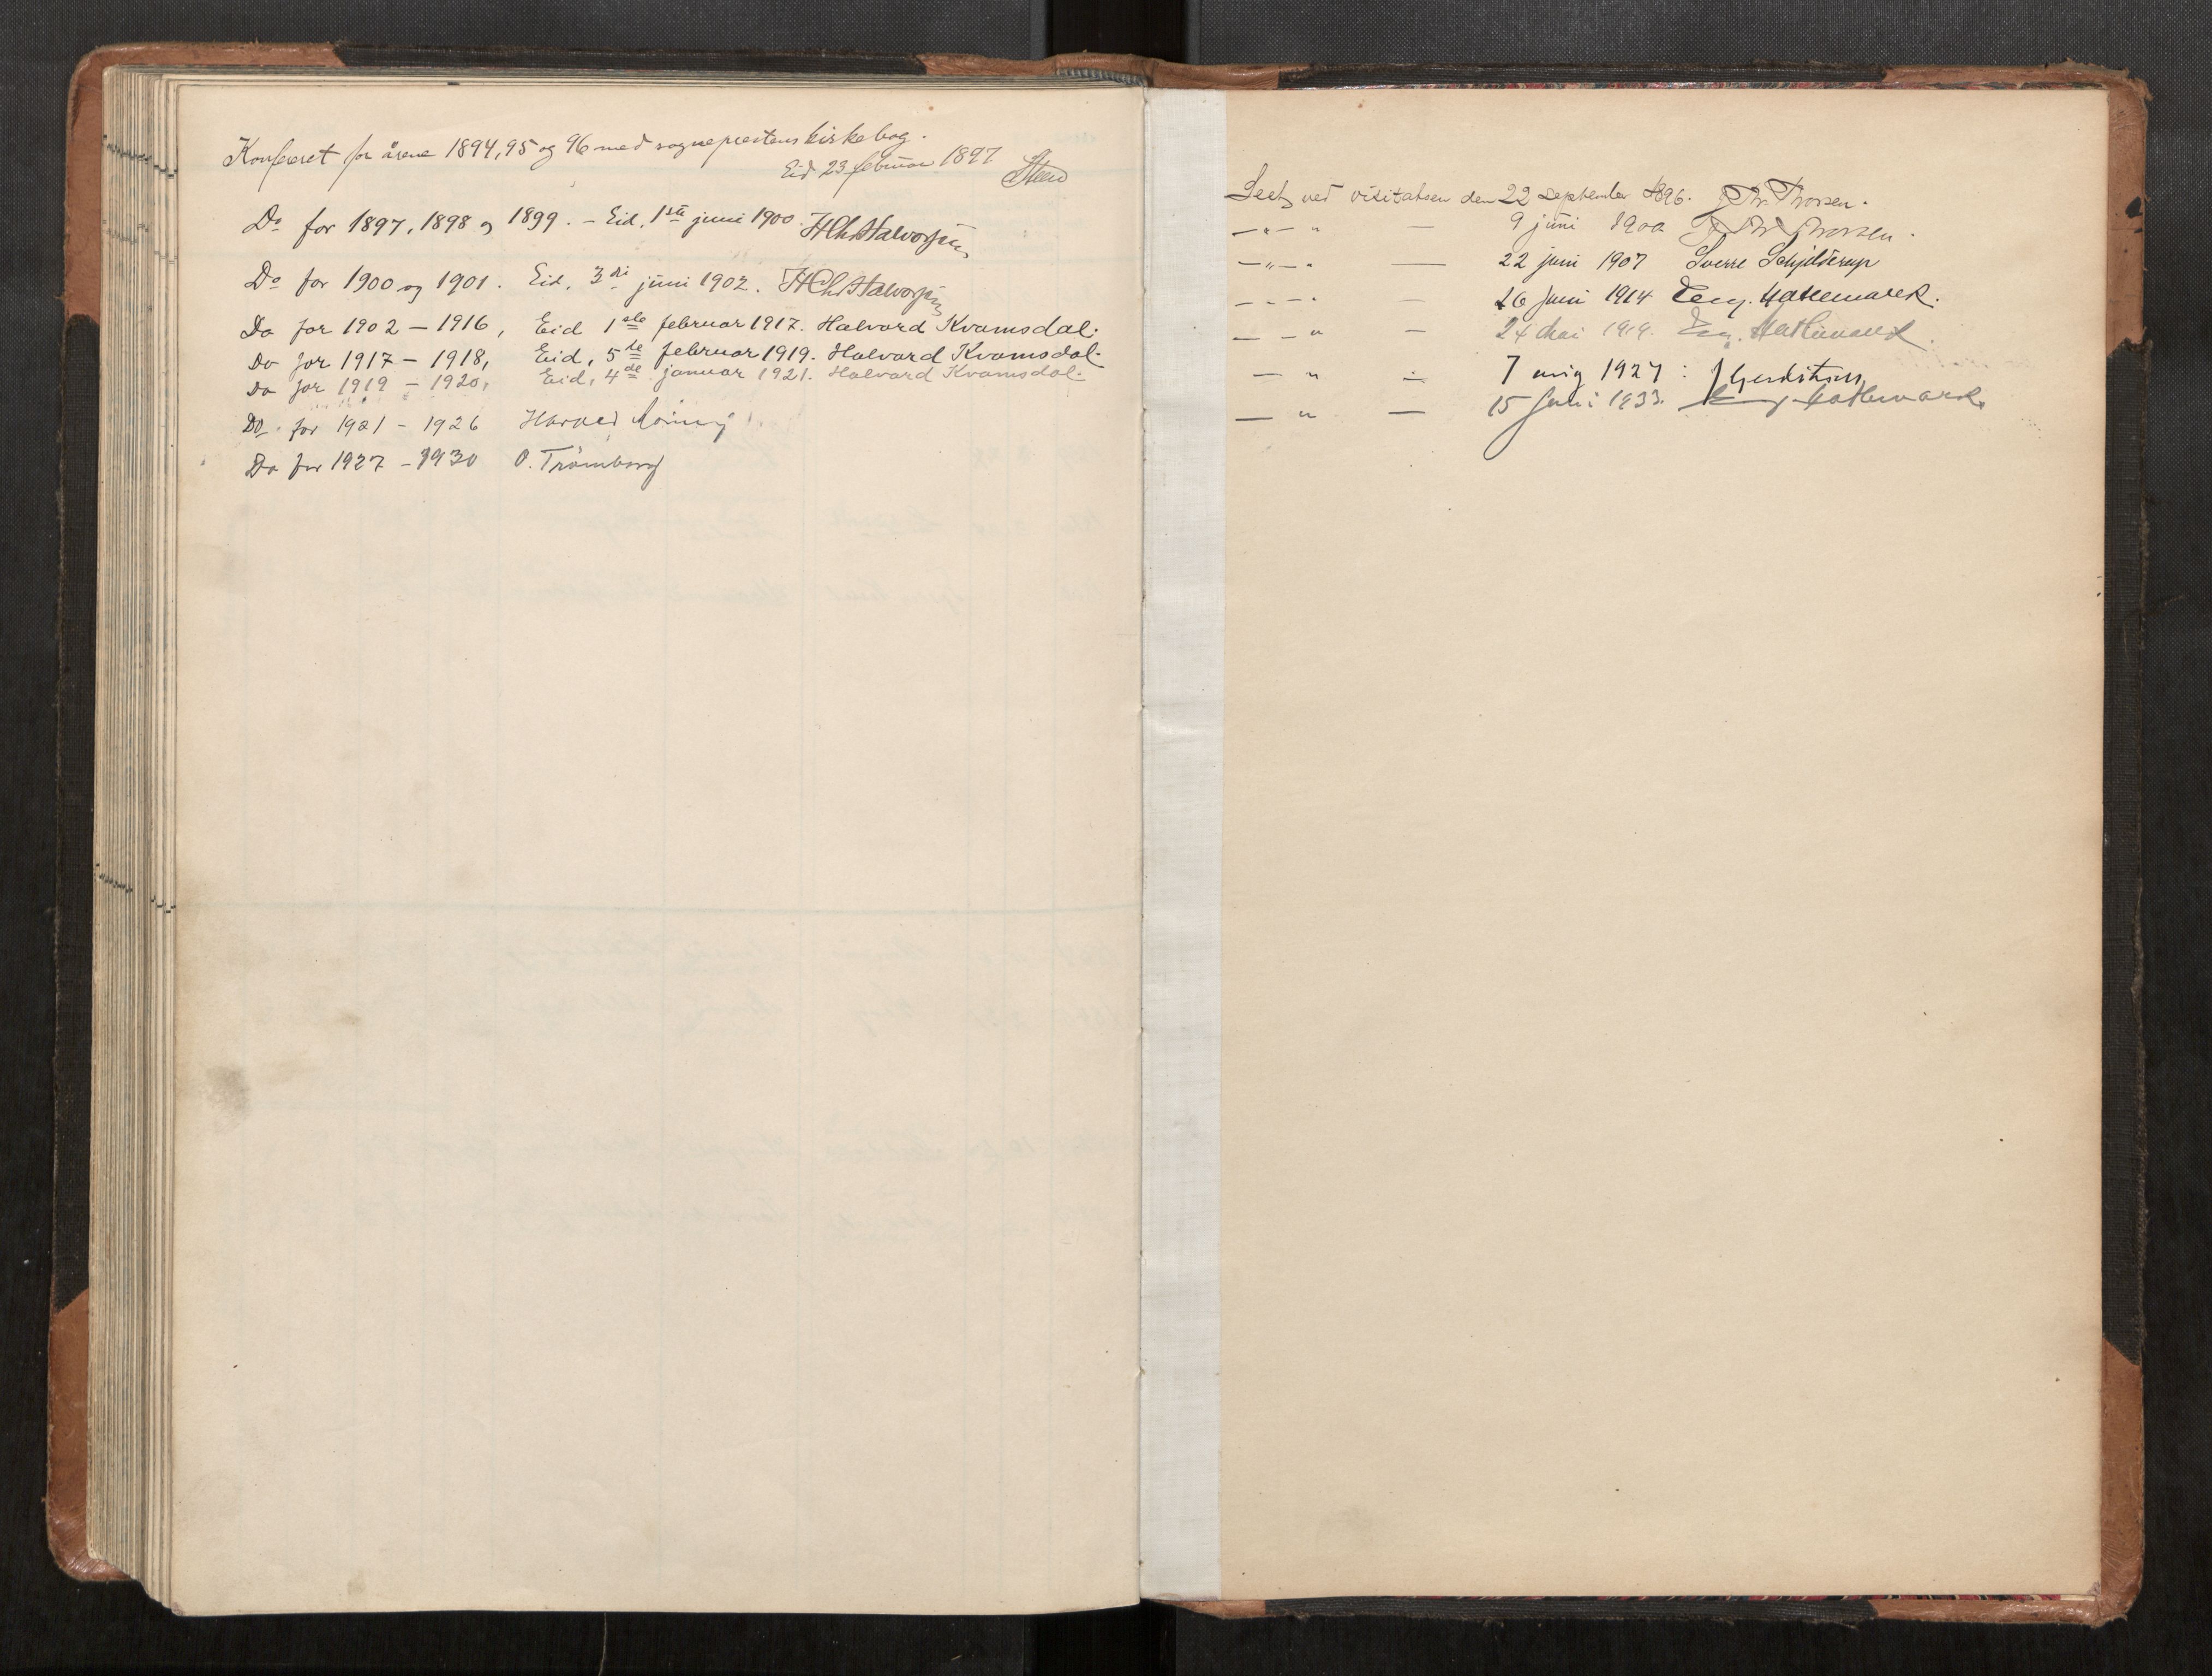 Konfereret for årene 1894, 95 og 96 med sogneprestens kirkebog.
Eid 23 februar 1897
Steen
Do for 1897, 1898 og 1899. – Eid, 1ste juni 1900. HChrHalvorsen
Do for 1900 og 1901. Eid, 3die juni 1902. HChrHalvorsen
Do for 1902 – 1916, Eid 1ste februar 1917. Halvard Kvamsdal.
Do for 1917 – 1918, Eid, 5te februar 1919. Halvard Kvamsdal.
Do for 1919 – 1920, Eid, 4de januar 1921. Halvard Kvamsdal.
Do for 1921 – 1926
Do for 1927 – 1930 O. Trømborg
Seet ved visitatsen den 22 september 1896. J Thr. Thorsen.
— „ — „ — 9 juni 1900 J Thr Thorsen.
— „ — „ — 22 juni 1907 Sverre Schjelderup
— „ — „ — 26 juni 1914 Eeg. Hatlemark.
— — „ — 24 mai 1919. Eeg. Hatlemark.
— „ — 7 aug 1927:
— „ — 15 juli 1933. Hatlemark.